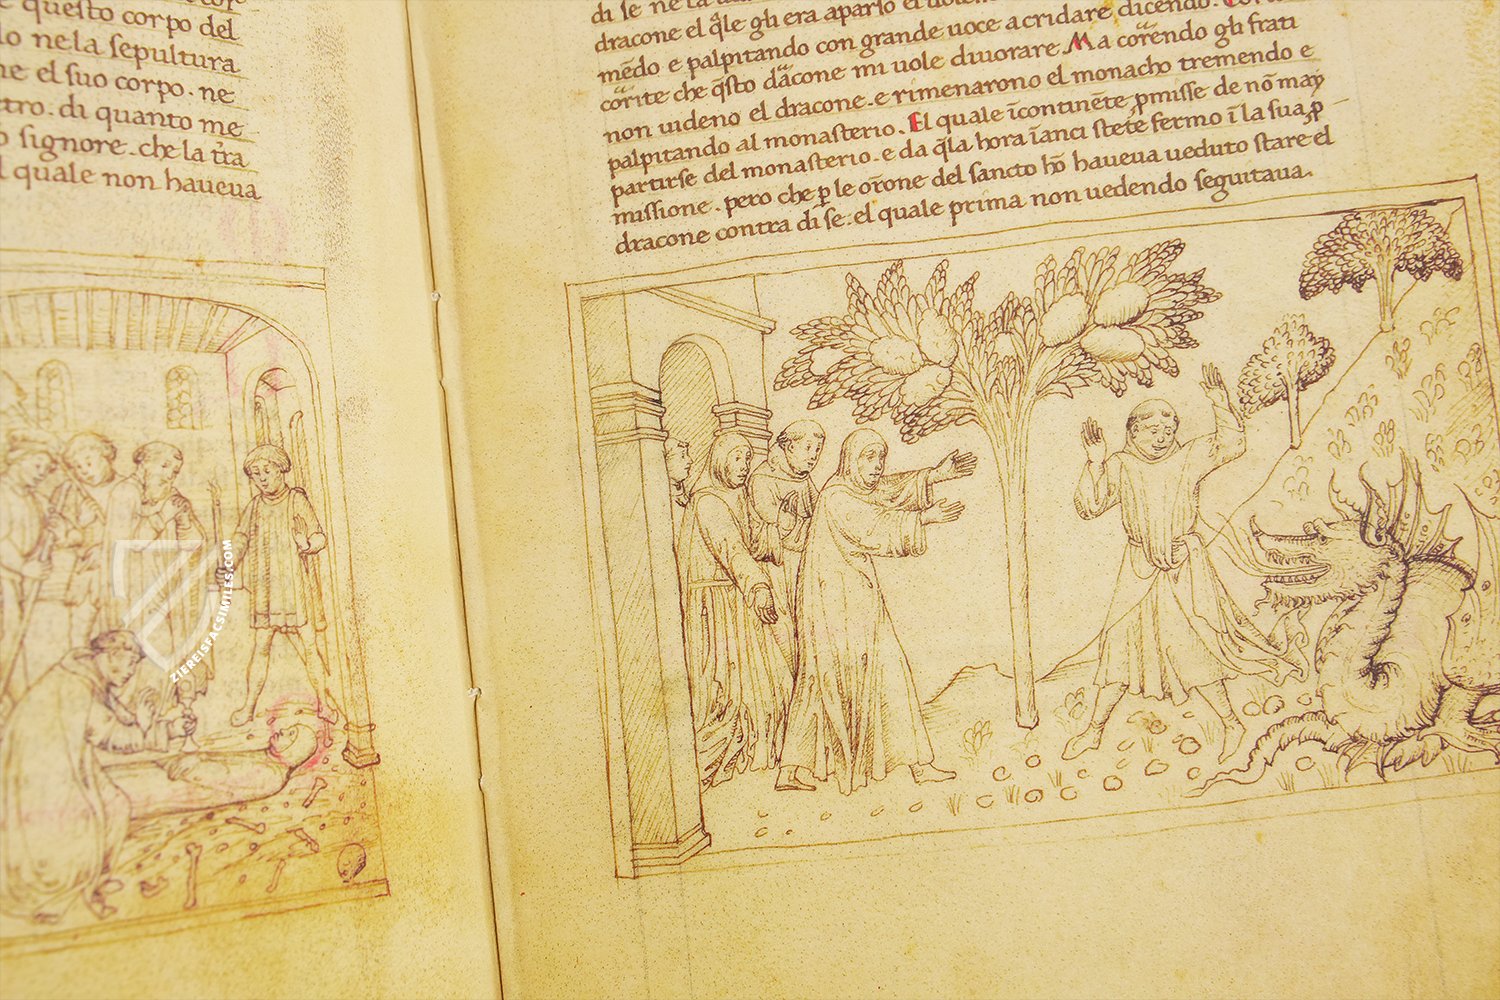 e questo corpo del
lo ne la sepultura
ne el suo corpo. ne
tro. di quanto me
o signore. che la tr̃a
l quale non haueua
di se ne la
dracone el q̃le gli era aparso el
mẽdo e palpitando con grande uoce a cridare dicendo.
corite che q̃sto dracone mi uole diuorare Ma corendo gli frati
non uideno el dracone. e rimenarono el monacho tremendo e
palpitando al monasterio. El quale ĩcontinẽte ꝓmisse de nõ may
partirse del monasterio. e da q̃la hora ĩanci stete fermo ĩ la sua ꝓ
missione. pero che ꝑ le orõne del sancto hõ haueua ueduto stare el
dracone contra di se. el quale prima non uedendo seguitaua.
ZIEREISFACSIMILES.COM